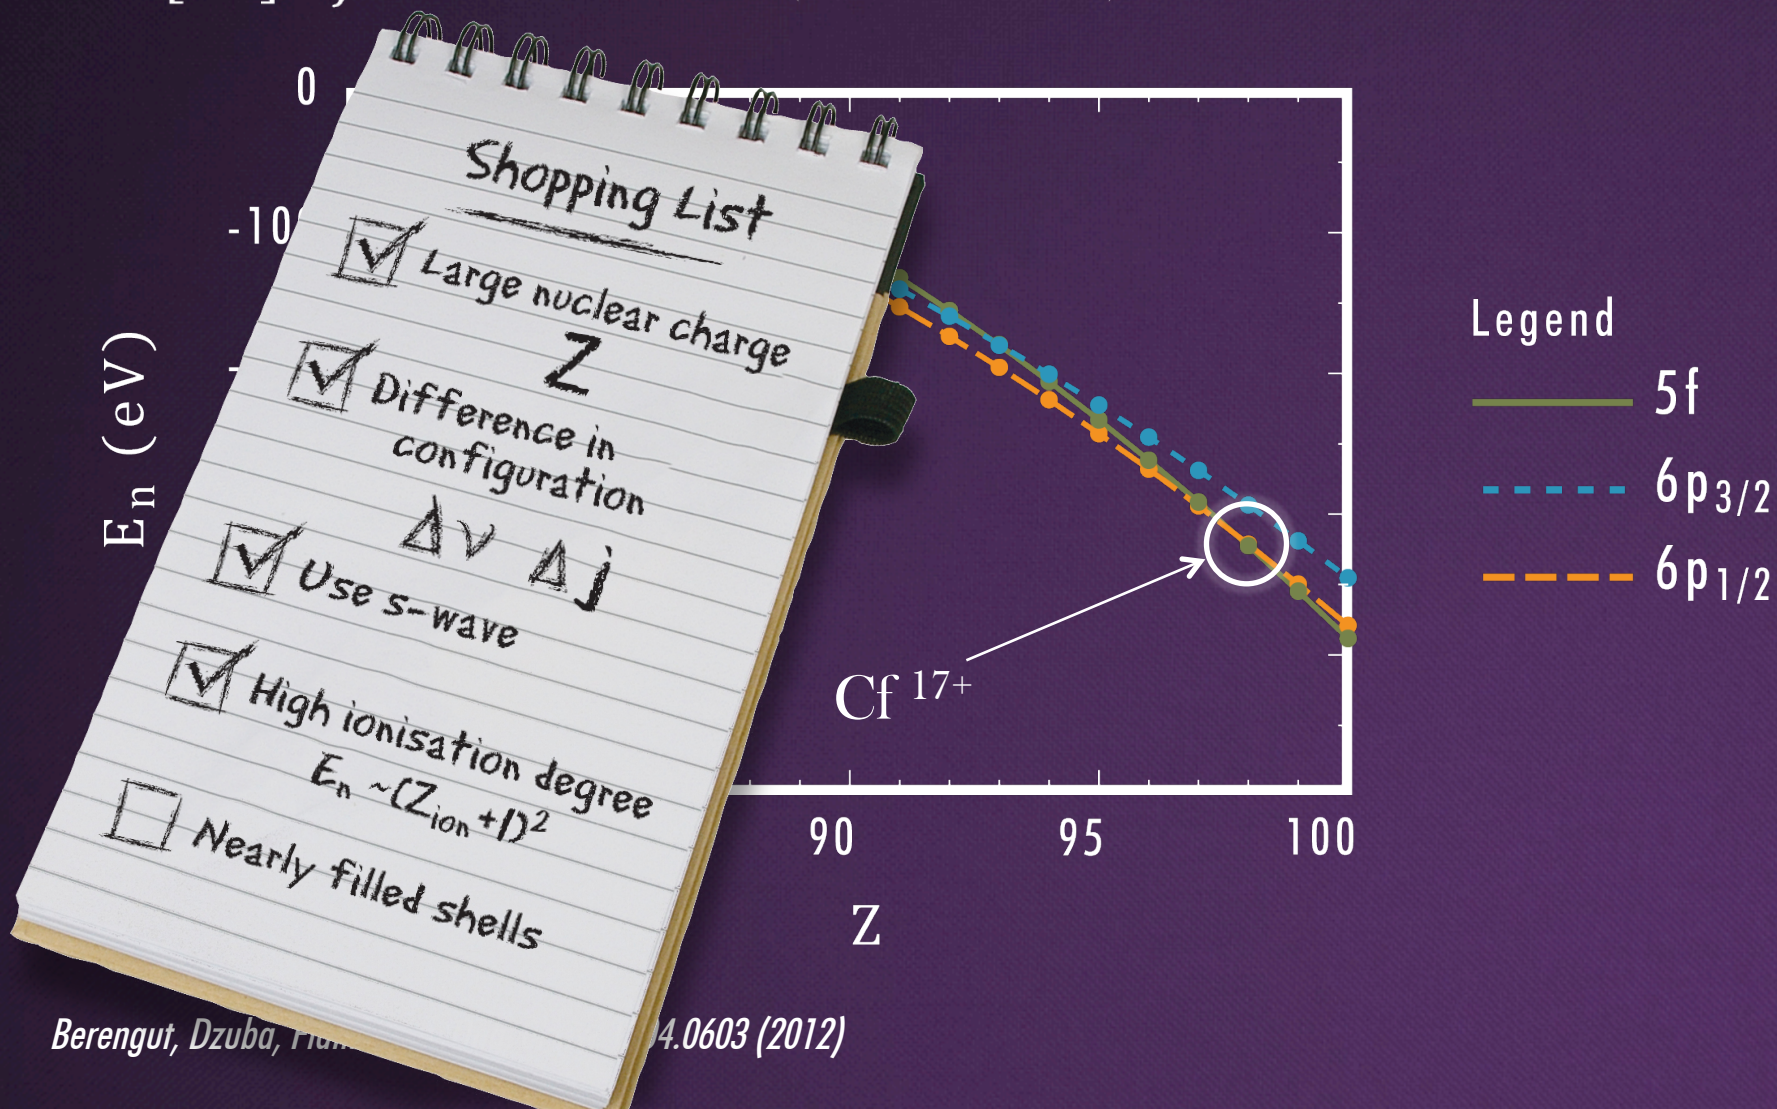 0
-10
Shopping List
Large nuclear charge
Z
Difference in
configuration
Δν Δj
Use s-wave
High ionisation degree
Eₙ ~(Z_ion +1)²
Nearly filled shells
Eₙ (eV)
Cf 17+
90 95 100
Z
Legend
5f
6p₃/₂
6p₁/₂
Berengut, Dzuba, .0603 (2012)